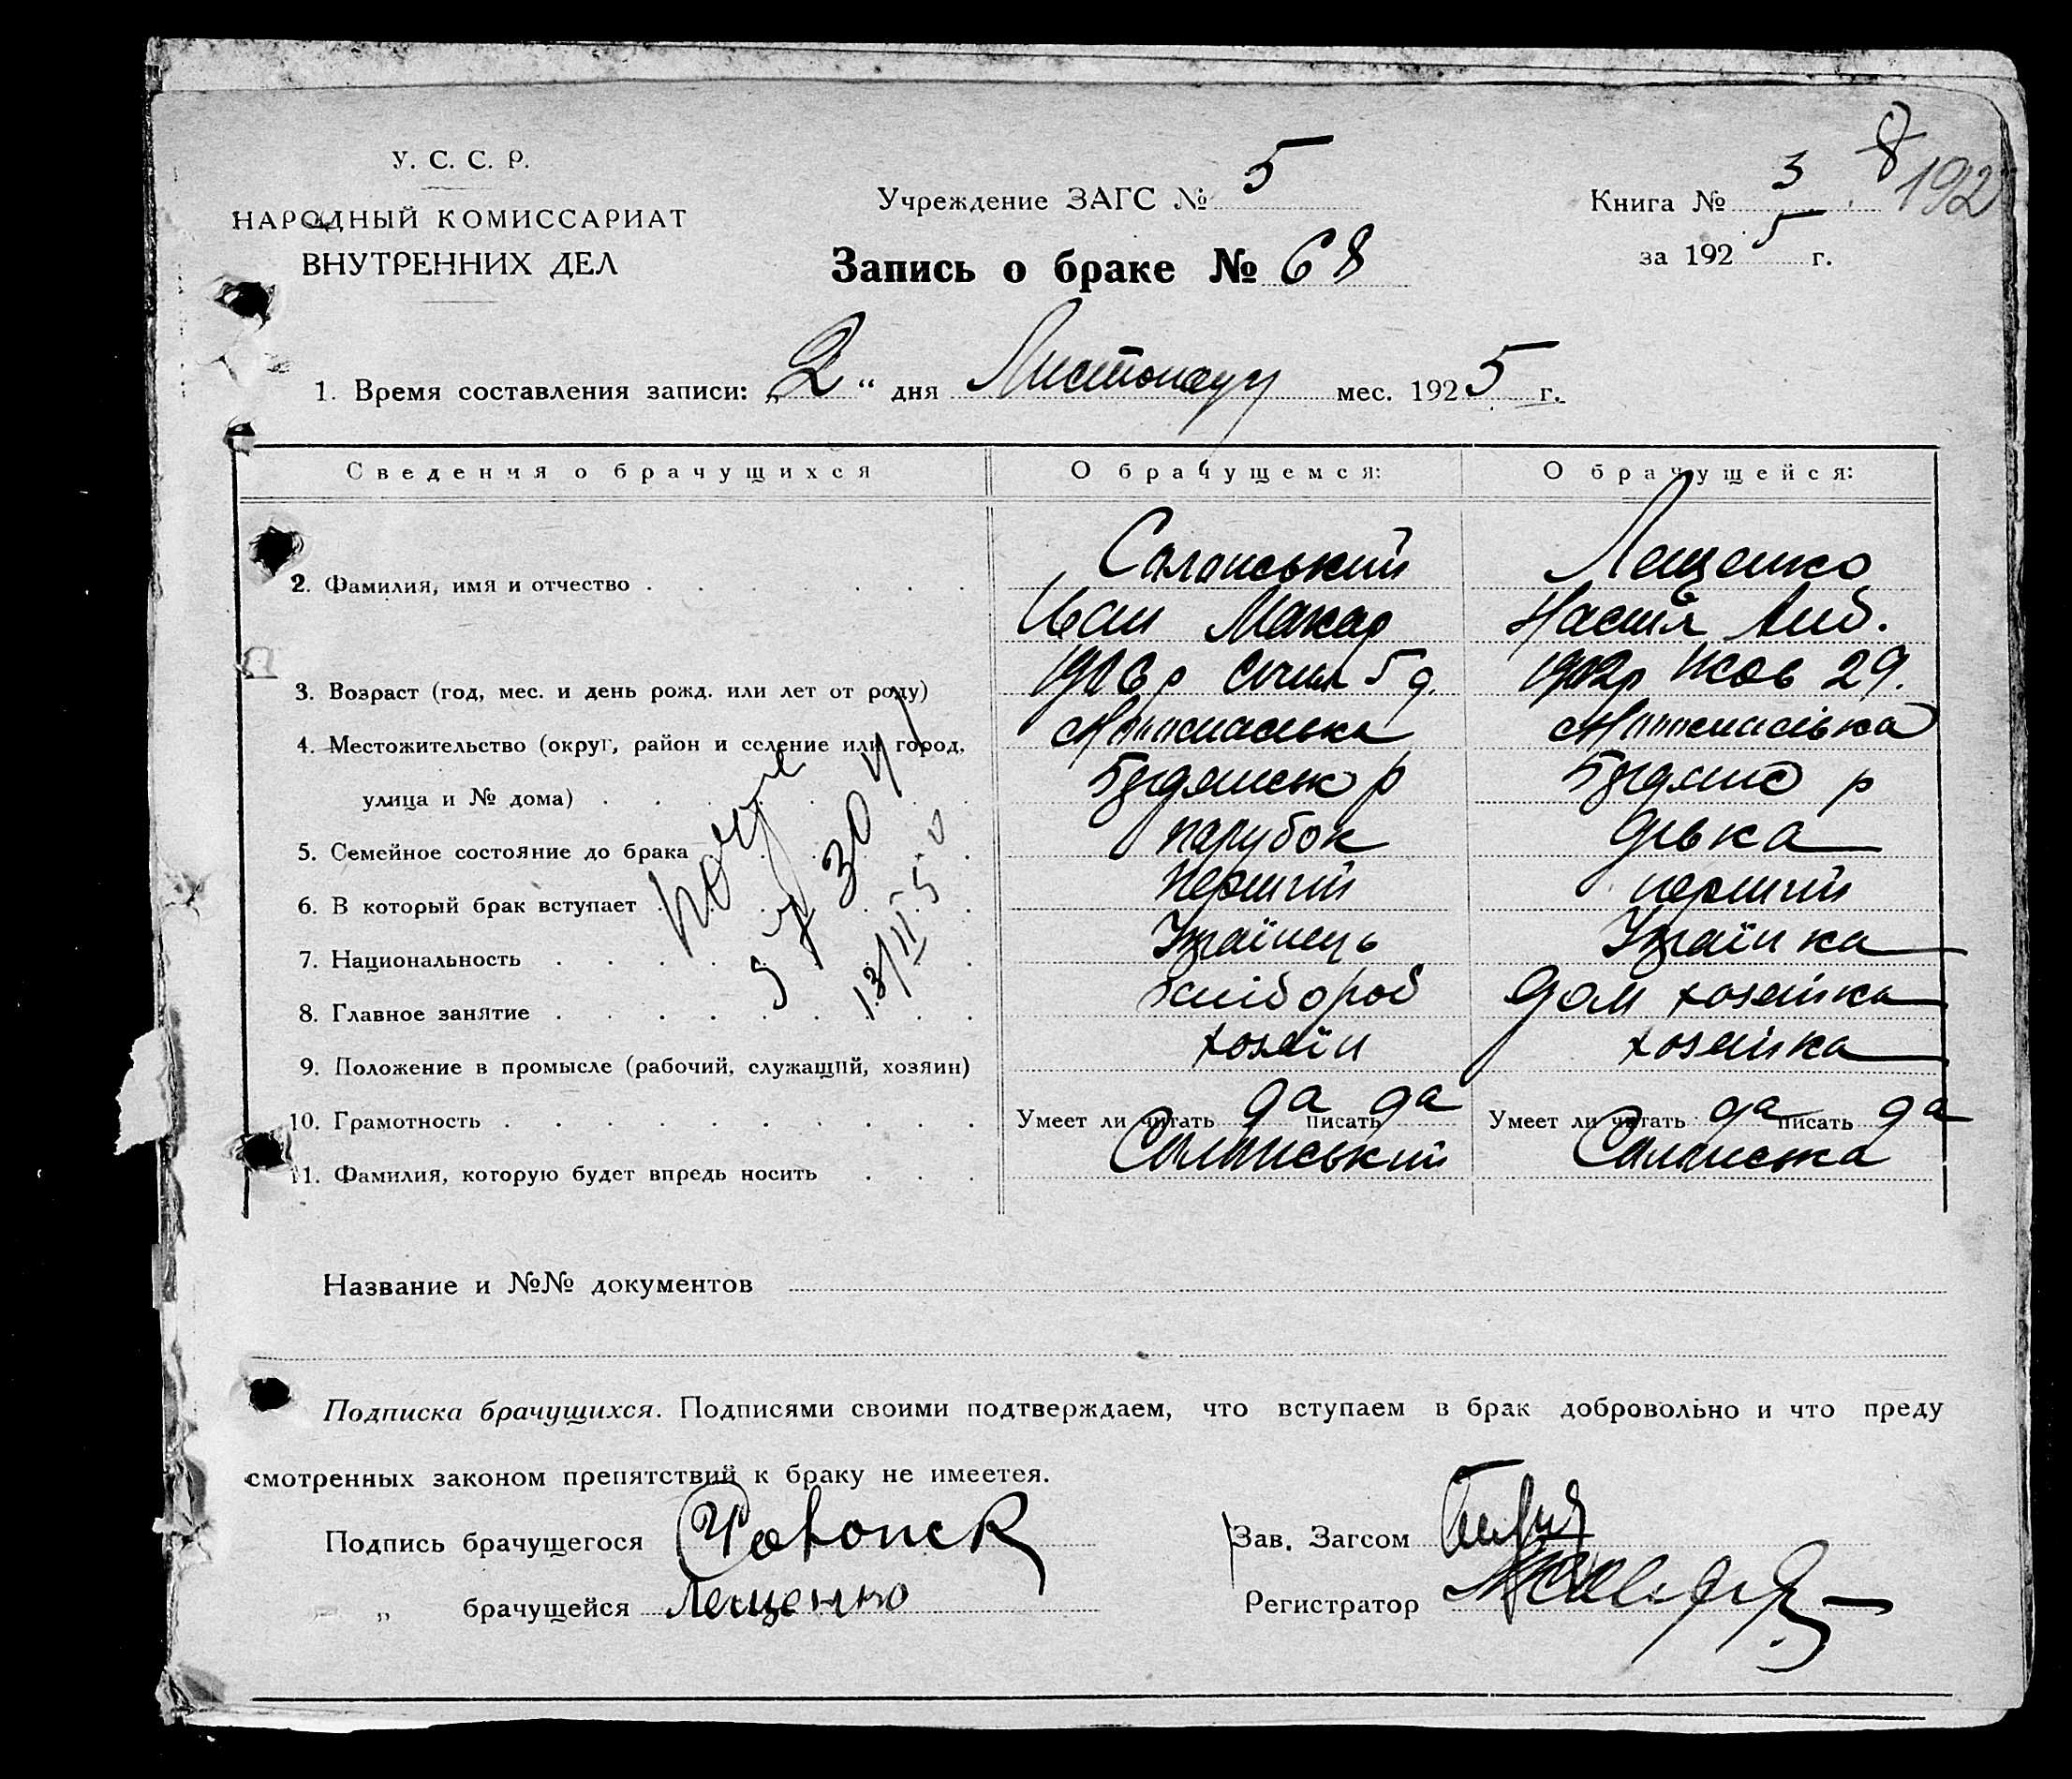 У. С. С. Р.
НАРОДНЫЙ КОМИССАРИАТ
ВНУТРЕННИХ ДЕЛ
Учреждение ЗАГС № 5
Книга № 3
192
за 1925 г.
Запись о браке № 68
1. Время составления записи: „2“ дня Листопаду мес. 1925 г.
Сведения о брачущихся О брачущемся: О брачущейся:
Лещенко
2. Фамилия, имя и отчество
Иван Макар Настя
3. Возраст (год, мес. и день рожд. или лет от роду) 1906 р Січня 5 д. 1902 р Жов 29.
4. Местожительство (округ, район и селение или город,
улица и № дома) р р
5. Семейное состояние до брака парубок дівка
6. В который брак вступает перший перший
7. Национальность Украінець Украінка
8. Главное занятие хлібороб дом хозяйка
9. Положение в промысле (рабочий, служащий, хозяин) хозяїн хозяйка
10. Грамотность Умеет ли читать да писать да Умеет ли читать да писать да
11. Фамилия, которую будет впредь носить
Название и №№ документов
Подписка брачущихся. Подписями своими подтверждаем, что вступаем в брак добровольно и что преду
смотренных законом препятствий к браку не имеетея.
Подпись брачущегося
Зав. Загсом
„ брачущейся Лещенко
Регистратор